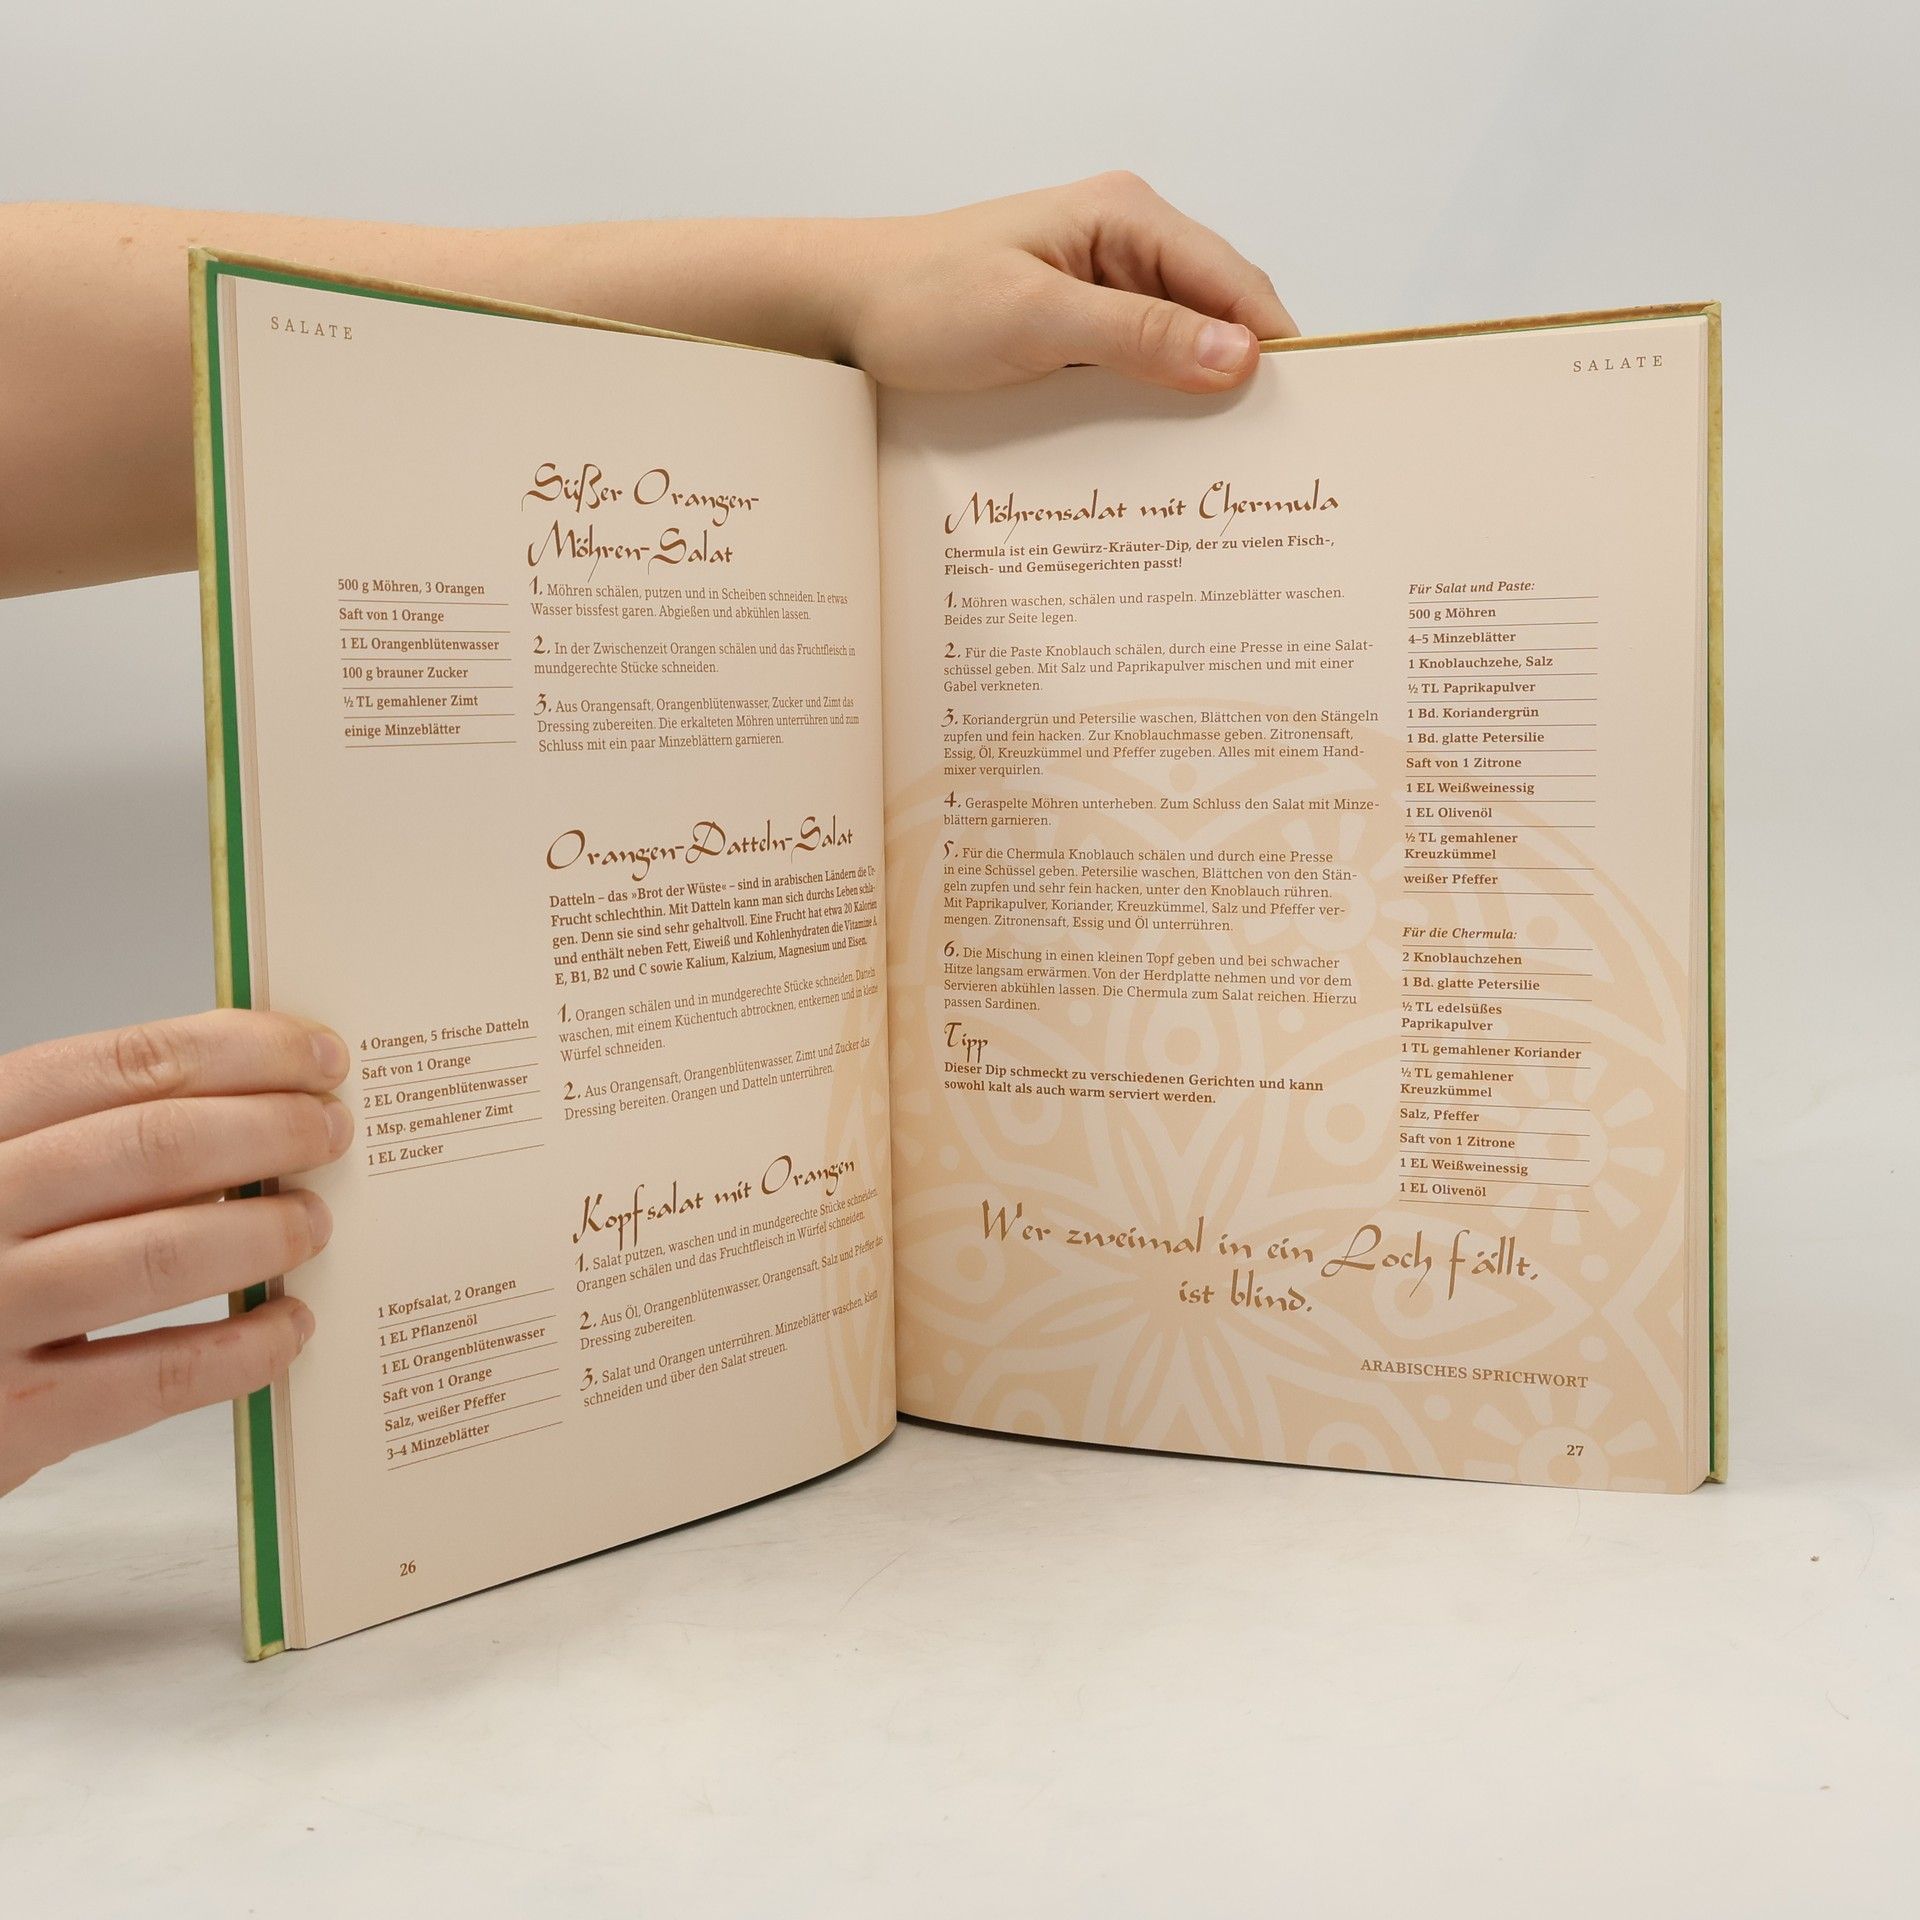 SALATE
Süßer Orangen-
Möhren-Salat
500 g Möhren, 3 Orangen
Saft von 1 Orange
1 EL Orangenblütenwasser
100 g brauner Zucker
½ TL gemahlener Zimt
einige Minzeblätter
1. Möhren schälen, putzen und in Scheiben schneiden. In etwas
Wasser bissfest garen. Abgießen und abkühlen lassen.
2. In der Zwischenzeit Orangen schälen und das Fruchtfleisch in
mundgerechte Stücke schneiden.
3. Aus Orangensaft, Orangenblütenwasser, Zucker und Zimt das
Dressing zubereiten. Die erkalteten Möhren unterrühren und zum
Schluss mit ein paar Minzeblättern garnieren.
Orangen-Datteln-Salat
Datteln – das »Brot der Wüste« – sind in arabischen Ländern die Ur-
Frucht schlechthin. Mit Datteln kann man sich durchs Leben schla-
gen. Denn sie sind sehr gehaltvoll. Eine Frucht hat etwa 20 Kalorien
und enthält neben Fett, Eiweiß und Kohlenhydraten die Vitamine A,
E, B1, B2 und C sowie Kalium, Kalzium, Magnesium und Eisen.
4 Orangen, 5 frische Datteln
Saft von 1 Orange
2 EL Orangenblütenwasser
1 Msp. gemahlener Zimt
1 EL Zucker
1. Orangen schälen und in mundgerechte Stücke schneiden. Datteln
waschen, mit einem Küchentuch abtrocknen, entkernen und in kleine
Würfel schneiden.
2. Aus Orangensaft, Orangenblütenwasser, Zimt und Zucker das
Dressing bereiten. Orangen und Datteln unterrühren.
Kopfsalat mit Orangen
1 Kopfsalat, 2 Orangen
1 EL Pflanzenöl
1 EL Orangenblütenwasser
Saft von 1 Orange
Salz, weißer Pfeffer
3–4 Minzeblätter
1. Salat putzen, waschen und in mundgerechte Stücke schneiden.
Orangen schälen und das Fruchtfleisch in Würfel schneiden.
2. Aus Öl, Orangenblütenwasser, Orangensaft, Salz und Pfeffer das
Dressing zubereiten.
3. Salat und Orangen unterrühren. Minzeblätter waschen, klein
schneiden und über den Salat streuen.
26
SALATE
Möhrensalat mit Chermula
Chermula ist ein Gewürz-Kräuter-Dip, der zu vielen Fisch-,
Fleisch- und Gemüsegerichten passt!
1. Möhren waschen, schälen und raspeln. Minzeblätter waschen.
Beides zur Seite legen.
2. Für die Paste Knoblauch schälen, durch eine Presse in eine Salat-
schüssel geben. Mit Salz und Paprikapulver mischen und mit einer
Gabel verkneten.
3. Koriandergrün und Petersilie waschen, Blättchen von den Stängeln
zupfen und fein hacken. Zur Knoblauchmasse geben. Zitronensaft,
Essig, Öl, Kreuzkümmel und Pfeffer zugeben. Alles mit einem Hand-
mixer verquirlen.
4. Geraspelte Möhren unterheben. Zum Schluss den Salat mit Minze-
blättern garnieren.
5. Für die Chermula Knoblauch schälen und durch eine Presse
in eine Schüssel geben. Petersilie waschen, Blättchen von den Stän-
geln zupfen und sehr fein hacken, unter den Knoblauch rühren.
Mit Paprikapulver, Koriander, Kreuzkümmel, Salz und Pfeffer ver-
mengen. Zitronensaft, Essig und Öl unterrühren.
6. Die Mischung in einen kleinen Topf geben und bei schwacher
Hitze langsam erwärmen. Von der Herdplatte nehmen und vor dem
Servieren abkühlen lassen. Die Chermula zum Salat reichen. Hierzu
passen Sardinen.
Tipp
Dieser Dip schmeckt zu verschiedenen Gerichten und kann
sowohl kalt als auch warm serviert werden.
Für Salat und Paste:
500 g Möhren
4–5 Minzeblätter
1 Knoblauchzehe, Salz
½ TL Paprikapulver
1 Bd. Koriandergrün
1 Bd. glatte Petersilie
Saft von 1 Zitrone
1 EL Weißweinessig
1 EL Olivenöl
½ TL gemahlener
Kreuzkümmel
weißer Pfeffer
Für die Chermula:
2 Knoblauchzehen
1 Bd. glatte Petersilie
½ TL edelsüßes
Paprikapulver
1 TL gemahlener Koriander
½ TL gemahlener
Kreuzkümmel
Salz, Pfeffer
Saft von 1 Zitrone
1 EL Weißweinessig
1 EL Olivenöl
Wer zweimal in ein Loch fällt,
ist blind.
ARABISCHES SPRICHWORT
27